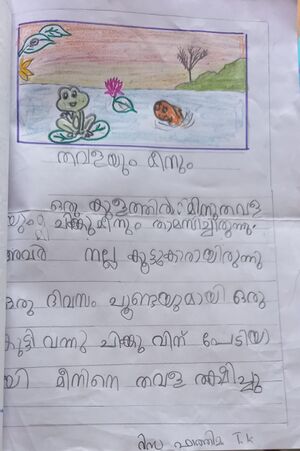 തവളയും മീനും
ഒരു കുളത്തിൽ മിന്നുതവള
യും ചിക്കുമീനും താമസിച്ചിരുന്നു.
അവർ നല്ല കൂട്ടുകാരായിരുന്നു
ഒരു ദിവസം ചൂണ്ടയുമായി ഒരു
കുട്ടി വന്നു ചിക്കു വിന് പേടിയാ
യി മീനിനെ തവള രക്ഷിച്ചു
റിസ ഫാത്തിമ T.K